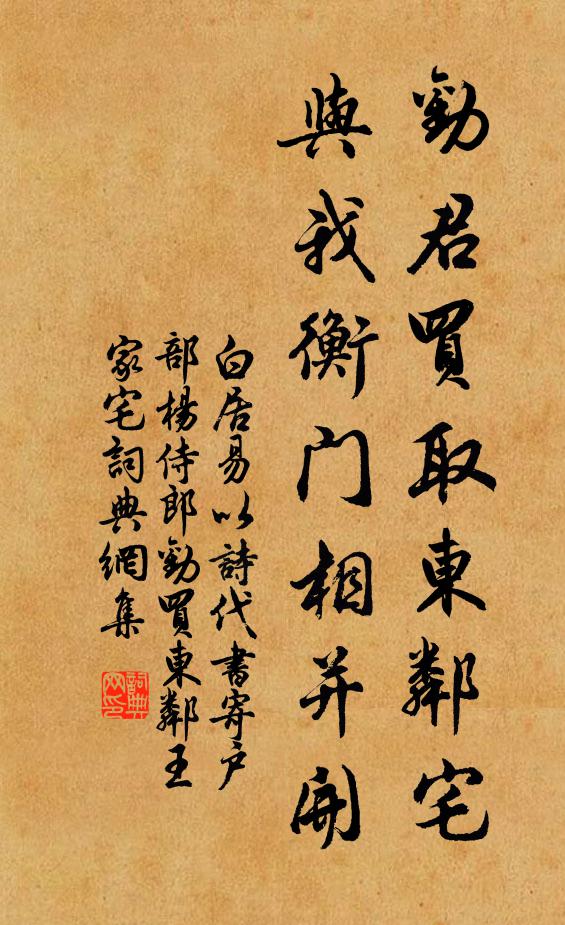 勸君買取東鄰宅
與我衡门相并開
白居易以詩代書寄户
部楊侍郎勸買東鄰王
家宅詞典網集
詞典
网印